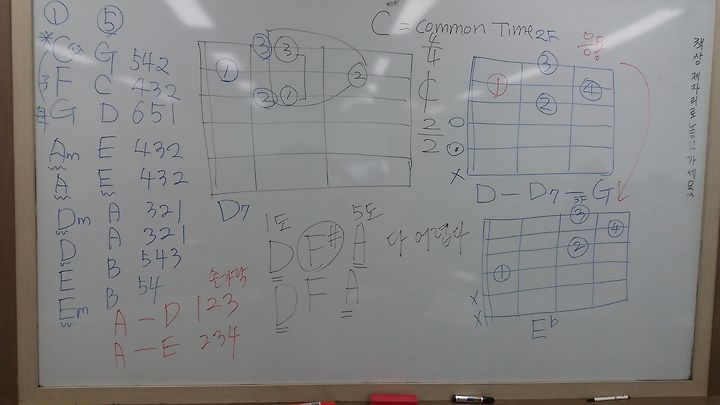 ① ⑤
C G 542
F C 432
G D 651
Am E 432
A E 432
Dm A 321
D A 321
E B 543
Em B 54
손가락
A — D 123
A — E 234
③ ③
① ②
② ①
D7
1도 5도
D F# A 다 어렵다
D F A
C = common Time
4/4
¢
2/2
2F 응용
③
① ④
②
x
D — D7 — G
3F
③ ④
②
①
x
x
E♭
책상 제자리로 놓고 가세요